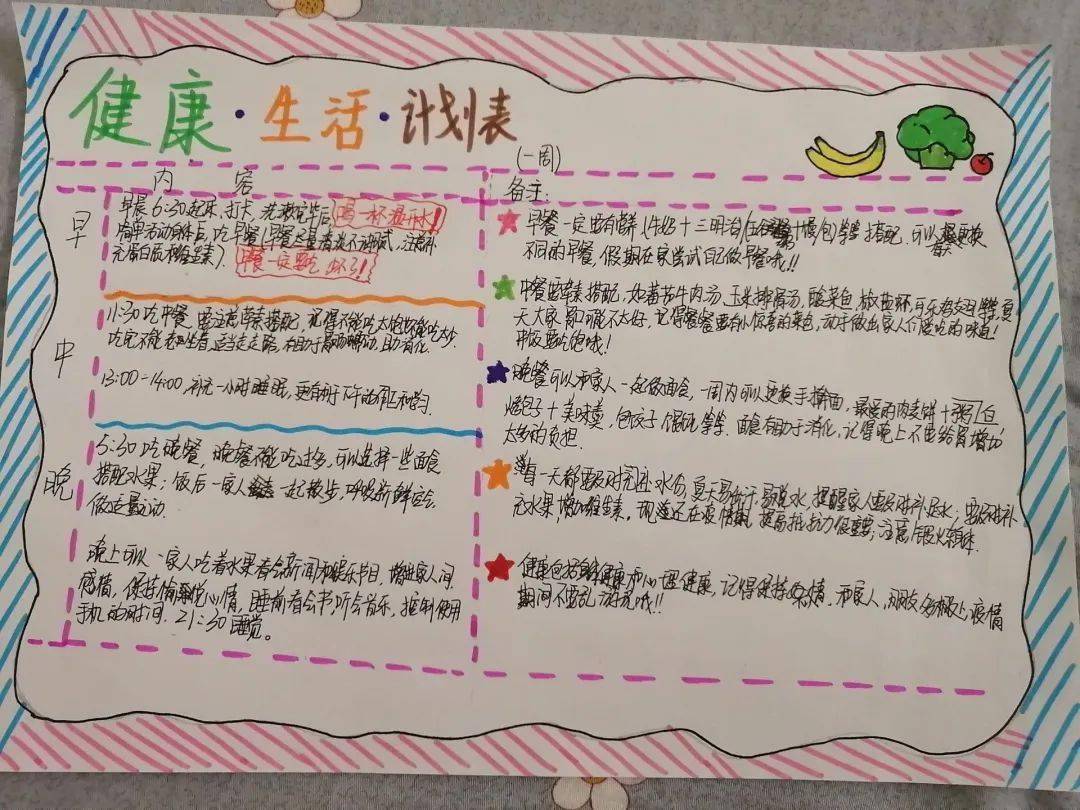 健康·生活·计划表
(一周)
内 容
早
早晨6:30起床,打卡,洗漱完毕后喝一杯温开水!
吃早餐(早餐尽量清淡不油腻,注意补
充蛋白质和维生素).早餐一定要吃好了!
中
11:30吃中餐,要注意荤素搭配,记得不能吃太饱也不能吃太少.
吃完不能老坐着,适当走走路,有助于肠胃蠕动,助消化.
13:00-14:00,补充一小时睡眠,更有利于下午的作用和学习.
晚
5:30吃晚餐,晚餐不能吃过多,可以选择一些面食
搭配水果;饭后一家人一起散步,呼吸新鲜空气
做适量运动.
晚上可以一家人吃着水果看会新闻和娱乐节目,增进家人间
感情,保持愉悦心情,睡前看会书听会音乐,控制使用
手机的时间.21:30睡觉。
备注:
早餐一定要有新鲜(牛奶+三明治/面包)等等搭配.可以更换
不同的早餐,假期在家尝试自己做早餐哦!!
中餐要荤素搭配,如番茄牛肉汤,玉米排骨汤,酸菜鱼,可乐鸡翅等,夏
天大家胃口可能不太好,记得餐餐要有小惊喜的菜色,动手做出家人们爱吃的味道!
中饭要吃饱哦!
晚餐可以和家人一起做面食,一周内可以更换手擀面,最爱的肉夹馍+粥/白
烧包子+美味羹,包饺子馄饨等等.面食有助于消化,记得晚上不要给胃增加
太多的负担.
每一天都要及时充还水分,夏天易脱水,提醒家人要及时补足水;要及时补
充水果,增加维生素。现在还在疫情期,提高抵抗力很重要;注意锻炼身体.
健康包括身体健康和心理健康,记得保持好心情.和家人,朋友多联系,疫情
期间不要乱动哦!!